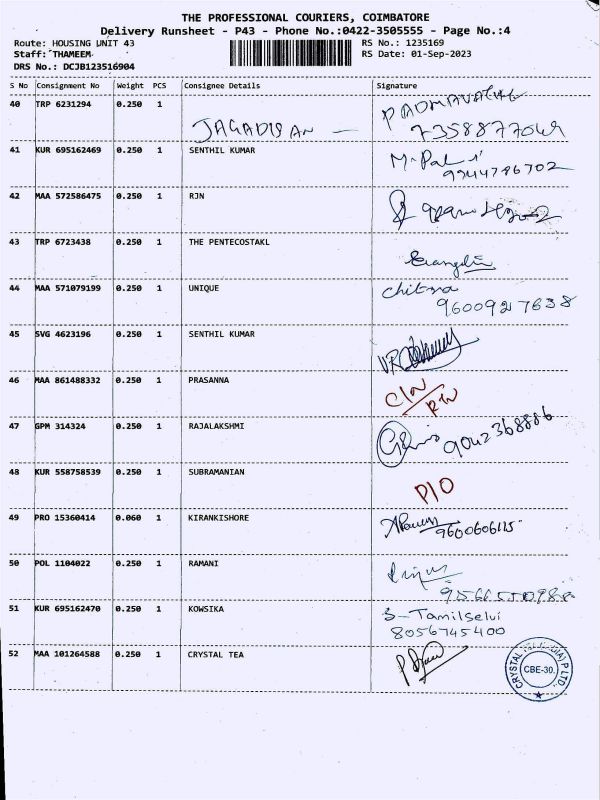 THE PROFESSIONAL COURIERS, COIMBATORE
Delivery Runsheet - P43 - Phone No.:0422-3505555 - Page No.:4
Route: HOUSING UNIT 43 RS No.: 1235169
Staff: THAMEEM RS Date: 01-Sep-2023
DRS No.: DCJB123516904
S No Consignment No Weight PCS Consignee Details Signature
40 TRP 6231294 0.250 1 PADMAVATHI
JAGADISAN — 7358877049
41 KUR 695162469 0.250 1 SENTHIL KUMAR M. Pal
9944786702
42 MAA 572586475 0.250 1 RJN
43 TRP 6723438 0.250 1 THE PENTECOSTAKL
44 MAA 571079199 0.250 1 UNIQUE chitra
9600927638
45 SVG 4623196 0.250 1 SENTHIL KUMAR
46 MAA 861488332 0.250 1 PRASANNA
47 GPM 314324 0.250 1 RAJALAKSHMI 9042368886
48 KUR 558758539 0.250 1 SUBRAMANIAN
P/O
49 PRO 15360414 0.060 1 KIRANKISHORE
9600606115
50 POL 1104022 0.250 1 RAMANI
51 KUR 695162470 0.250 1 KOWSIKA S- Tamilselvi
8056745400
52 MAA 101264588 0.250 1 CRYSTAL TEA
CRYSTAL TEA (INDIA) P LTD.
CBE-30.